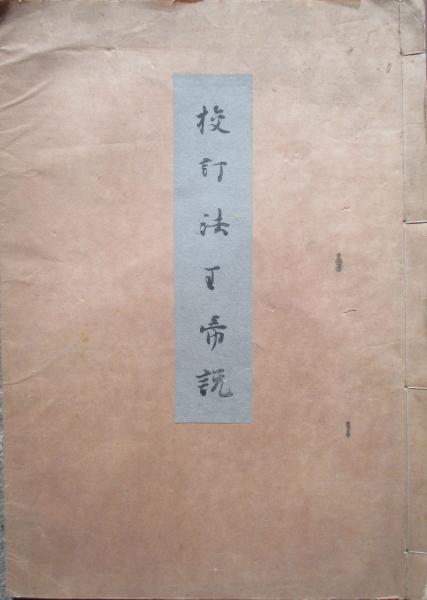 校訂法王帝説